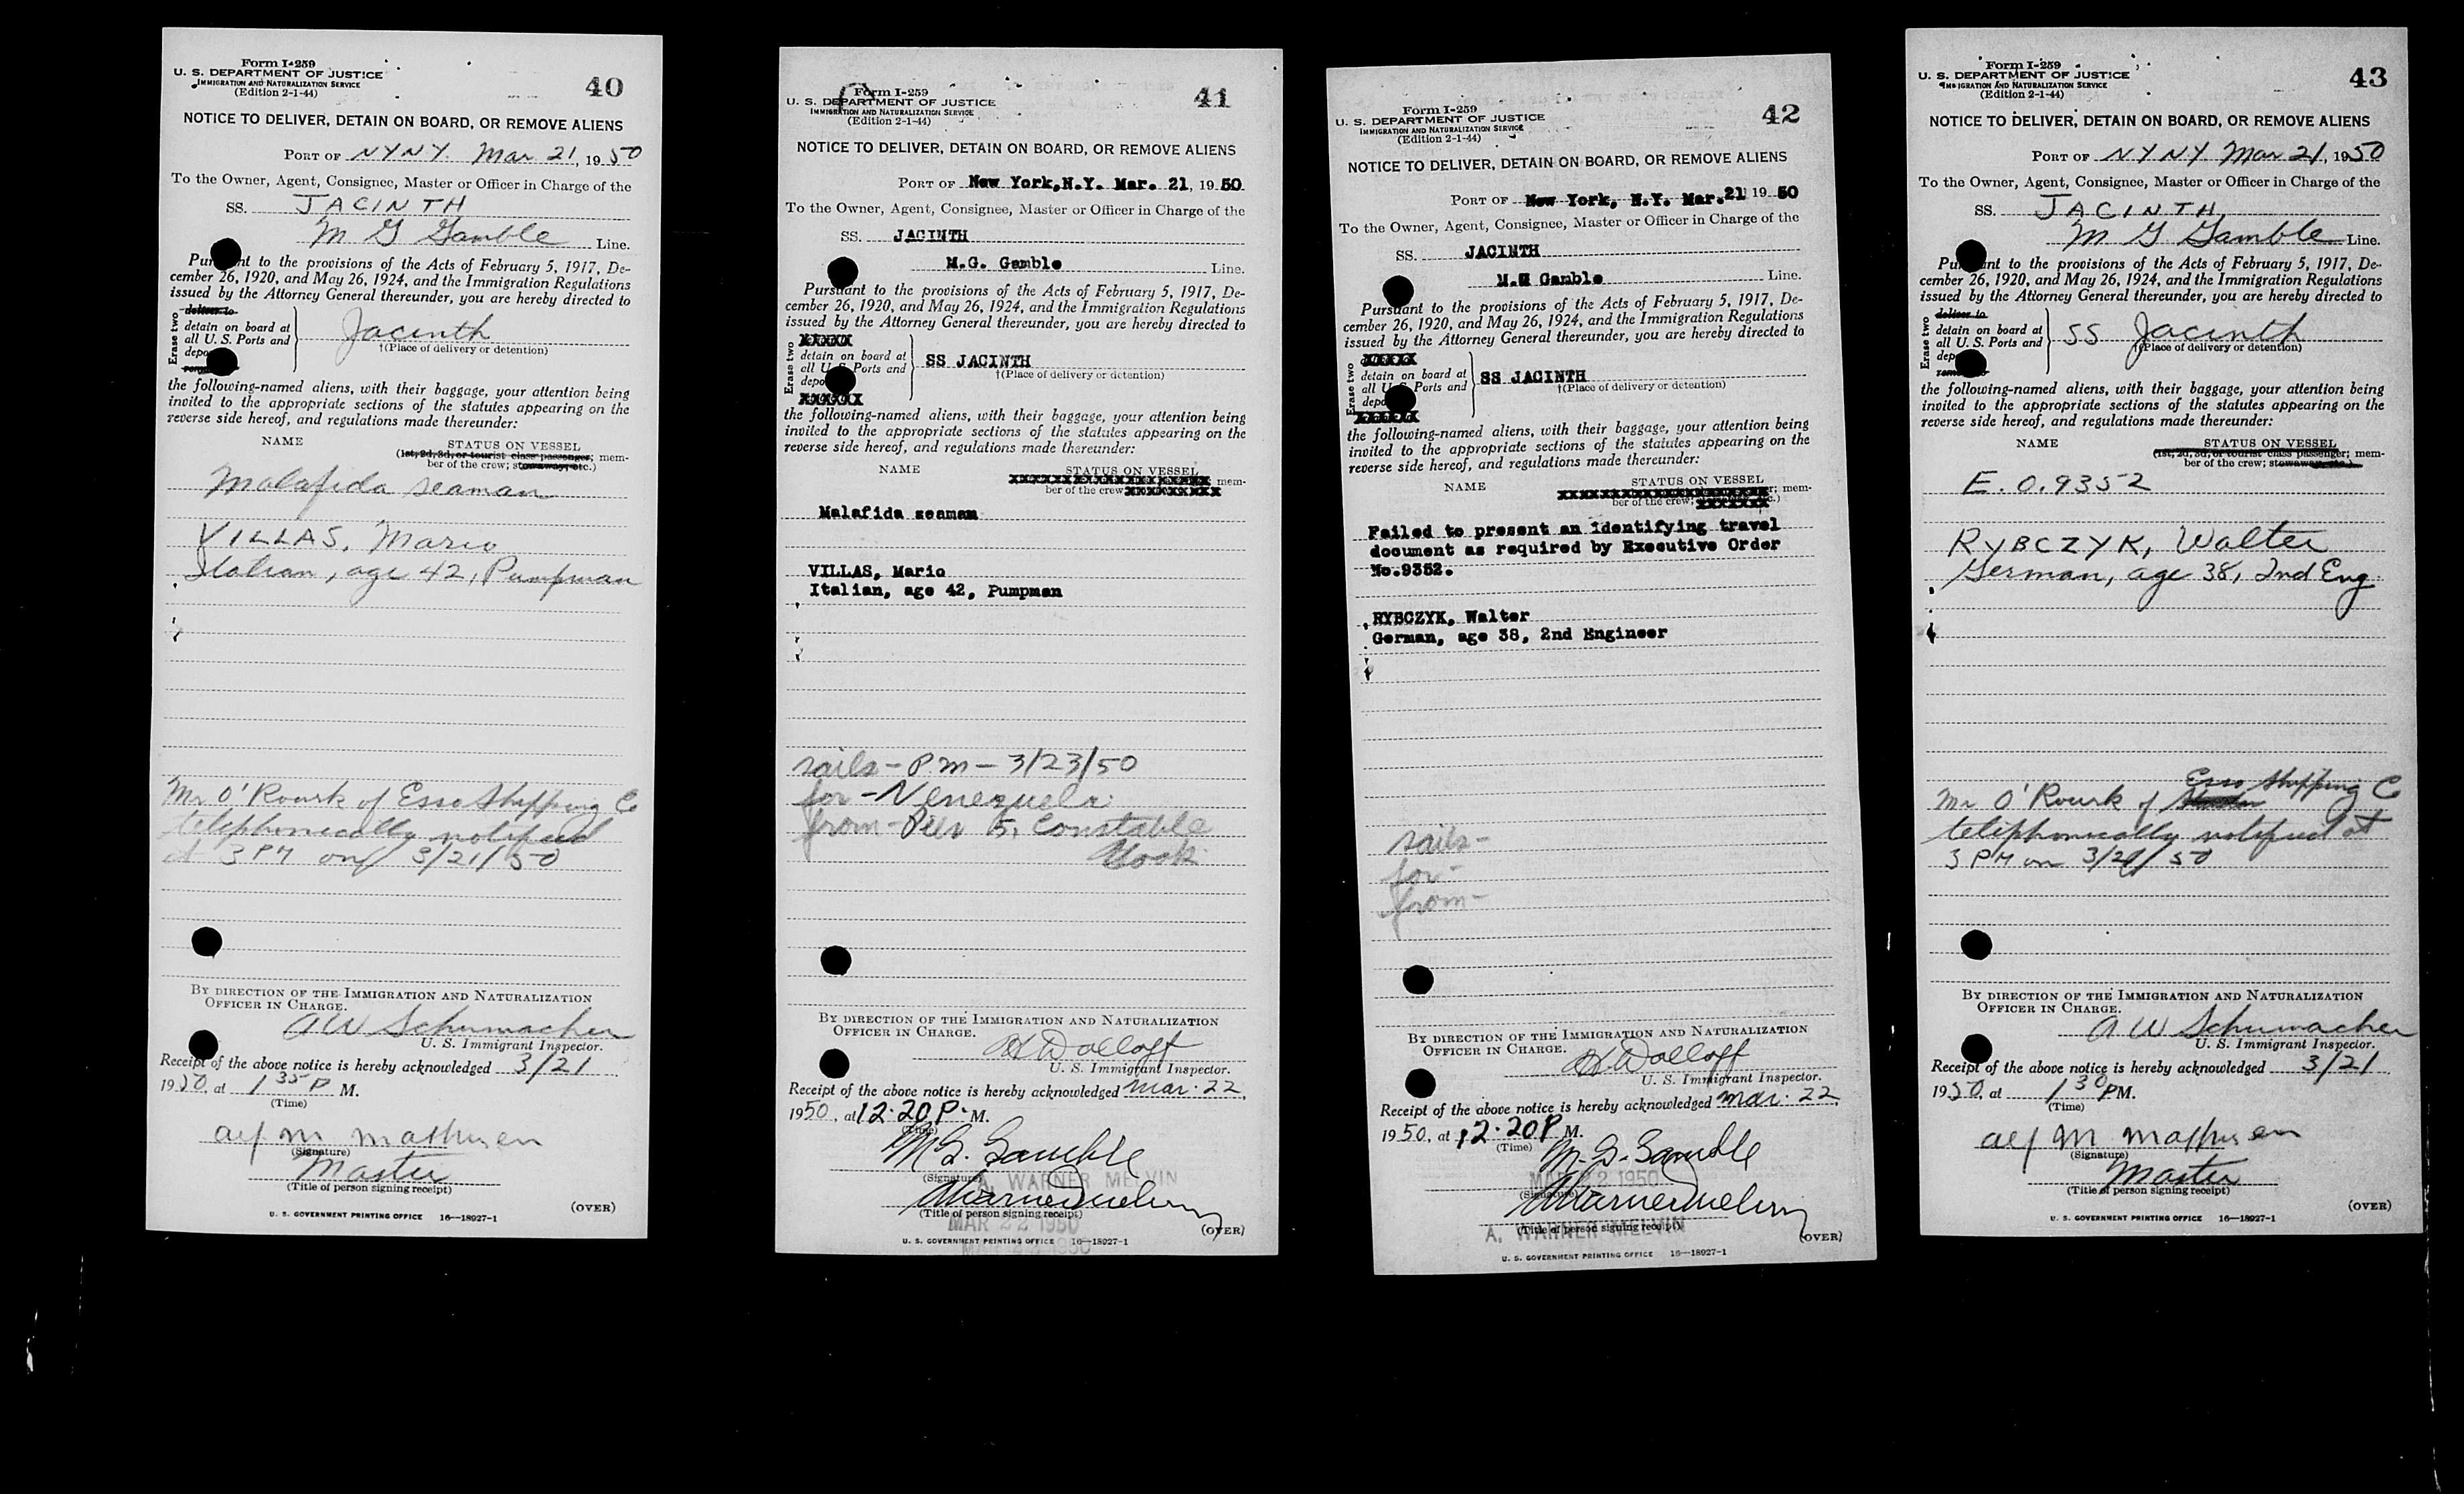 Form I-259
U. S. DEPARTMENT OF JUSTICE
IMMIGRATION AND NATURALIZATION SERVICE
(Edition 2-1-44)
40
NOTICE TO DELIVER, DETAIN ON BOARD, OR REMOVE ALIENS
PORT OF NYNY Mar 21, 1950
To the Owner, Agent, Consignee, Master or Officer in Charge of the
SS. JACINTH
M G Gamble Line.
to the provisions of the Acts of February 5, 1917, De-
cember 26, 1920, and May 26, 1924, and the Immigration Regulations
issued by the Attorney General thereunder, you are hereby directed to
Erase two
deliver to
detain on board at
all U. S. Ports and
Jacinth
†(Place of delivery or detention)
the following-named aliens, with their baggage, your attention being
invited to the appropriate sections of the statutes appearing on the
reverse side hereof, and regulations made thereunder:
NAME STATUS ON VESSEL
(1st, 2d, 3d, or tourist class passenger; mem-
ber of the crew; stowaway, etc.)
Malafida seaman
VILLAS, Mario
Italian, age 42, Pumpman
Mr O'Rourk of Esso Shipping Co
telephonically notified
at 3 PM on 3/21/50
BY DIRECTION OF THE IMMIGRATION AND NATURALIZATION
OFFICER IN CHARGE.
A W Schumacher
U. S. Immigrant Inspector.
Receipt of the above notice is hereby acknowledged 3/21
1950, at 1 35 P M.
(Time)
(Signature)
Master
(Title of person signing receipt)
(OVER)
U. S. GOVERNMENT PRINTING OFFICE 16—18927-1
Form I-259
U. S. DEPARTMENT OF JUSTICE
IMMIGRATION AND NATURALIZATION SERVICE
(Edition 2-1-44)
41
NOTICE TO DELIVER, DETAIN ON BOARD, OR REMOVE ALIENS
PORT OF New York,N.Y. Mar. 21, 1950
To the Owner, Agent, Consignee, Master or Officer in Charge of the
SS. JACINTH
M.G. Gamble Line.
Pursuant to the provisions of the Acts of February 5, 1917, De-
cember 26, 1920, and May 26, 1924, and the Immigration Regulations
issued by the Attorney General thereunder, you are hereby directed to
Erase two
XXXXX
detain on board at
all U. S. Ports and
XXXXXX
SS JACINTH
†(Place of delivery or detention)
the following-named aliens, with their baggage, your attention being
invited to the appropriate sections of the statutes appearing on the
reverse side hereof, and regulations made thereunder:
NAME STATUS ON VESSEL
mem-
ber of the crew
Malafida seaman
VILLAS, Mario
Italian, age 42, Pumpman
sails - P.M - 3/23/50
for - Venezuela
from - Pier 5, Constable
Hook
BY DIRECTION OF THE IMMIGRATION AND NATURALIZATION
OFFICER IN CHARGE.
U. S. Immigrant Inspector.
Receipt of the above notice is hereby acknowledged Mar. 22,
1950, at 12.20 P. M.
(Time)
M G. Gamble
(Signature)
A. WARNER MELVIN
A Warner Melvin
(Title of person signing receipt)
MAR 22 1950
(OVER)
U. S. GOVERNMENT PRINTING OFFICE 16—18927-1
MAR 22 1950
Form I-259
U. S. DEPARTMENT OF JUSTICE
IMMIGRATION AND NATURALIZATION SERVICE
(Edition 2-1-44)
42
NOTICE TO DELIVER, DETAIN ON BOARD, OR REMOVE ALIENS
PORT OF New York, N.Y. Mar. 21 1950
To the Owner, Agent, Consignee, Master or Officer in Charge of the
SS. JACINTH
M.G Gamble Line.
Pursuant to the provisions of the Acts of February 5, 1917, De-
cember 26, 1920, and May 26, 1924, and the Immigration Regulations
issued by the Attorney General thereunder, you are hereby directed to
Erase two
XXXXX
detain on board at
all U. S. Ports and
XXXXXX
SS JACINTH
†(Place of delivery or detention)
the following-named aliens, with their baggage, your attention being
invited to the appropriate sections of the statutes appearing on the
reverse side hereof, and regulations made thereunder:
NAME STATUS ON VESSEL
mem-
ber of the crew;
Failed to present an identifying travel
document as required by Executive Order
No.9352.
RYBCZYK, Walter
German, age 38, 2nd Engineer
sails-
for-
from-
BY DIRECTION OF THE IMMIGRATION AND NATURALIZATION
OFFICER IN CHARGE.
U. S. Immigrant Inspector.
Receipt of the above notice is hereby acknowledged Mar. 22
1950, at 12.20 P M.
(Time)
M. G. Gamble
MAR 22 1950
(Signature)
A Warner Melvin
(Title of person signing receipt)
A. WARNER MELVIN
(OVER)
U. S. GOVERNMENT PRINTING OFFICE 16—18927-1
Form I-259
U. S. DEPARTMENT OF JUSTICE
IMMIGRATION AND NATURALIZATION SERVICE
(Edition 2-1-44)
43
NOTICE TO DELIVER, DETAIN ON BOARD, OR REMOVE ALIENS
PORT OF NYNY Mar 21, 1950
To the Owner, Agent, Consignee, Master or Officer in Charge of the
SS. JACINTH
M G Gamble Line.
to the provisions of the Acts of February 5, 1917, De-
cember 26, 1920, and May 26, 1924, and the Immigration Regulations
issued by the Attorney General thereunder, you are hereby directed to
Erase two
deliver to
detain on board at
all U. S. Ports and
SS Jacinth
†(Place of delivery or detention)
the following-named aliens, with their baggage, your attention being
invited to the appropriate sections of the statutes appearing on the
reverse side hereof, and regulations made thereunder:
NAME STATUS ON VESSEL
(1st, 2d, 3d, or tourist class passenger; mem-
ber of the crew; stowaway, etc.)
E.O.9352
RYBCZYK, Walter
German, age 38, 2nd Eng.
Mr O'Rourk of Esso Shipping Co
telephonically notified at
3 PM on 3/21/50
BY DIRECTION OF THE IMMIGRATION AND NATURALIZATION
OFFICER IN CHARGE.
A W Schumacher
U. S. Immigrant Inspector.
Receipt of the above notice is hereby acknowledged 3/21
1950, at 1 30 PM.
(Time)
(Signature)
Master
(Title of person signing receipt)
(OVER)
U. S. GOVERNMENT PRINTING OFFICE 16—18927-1